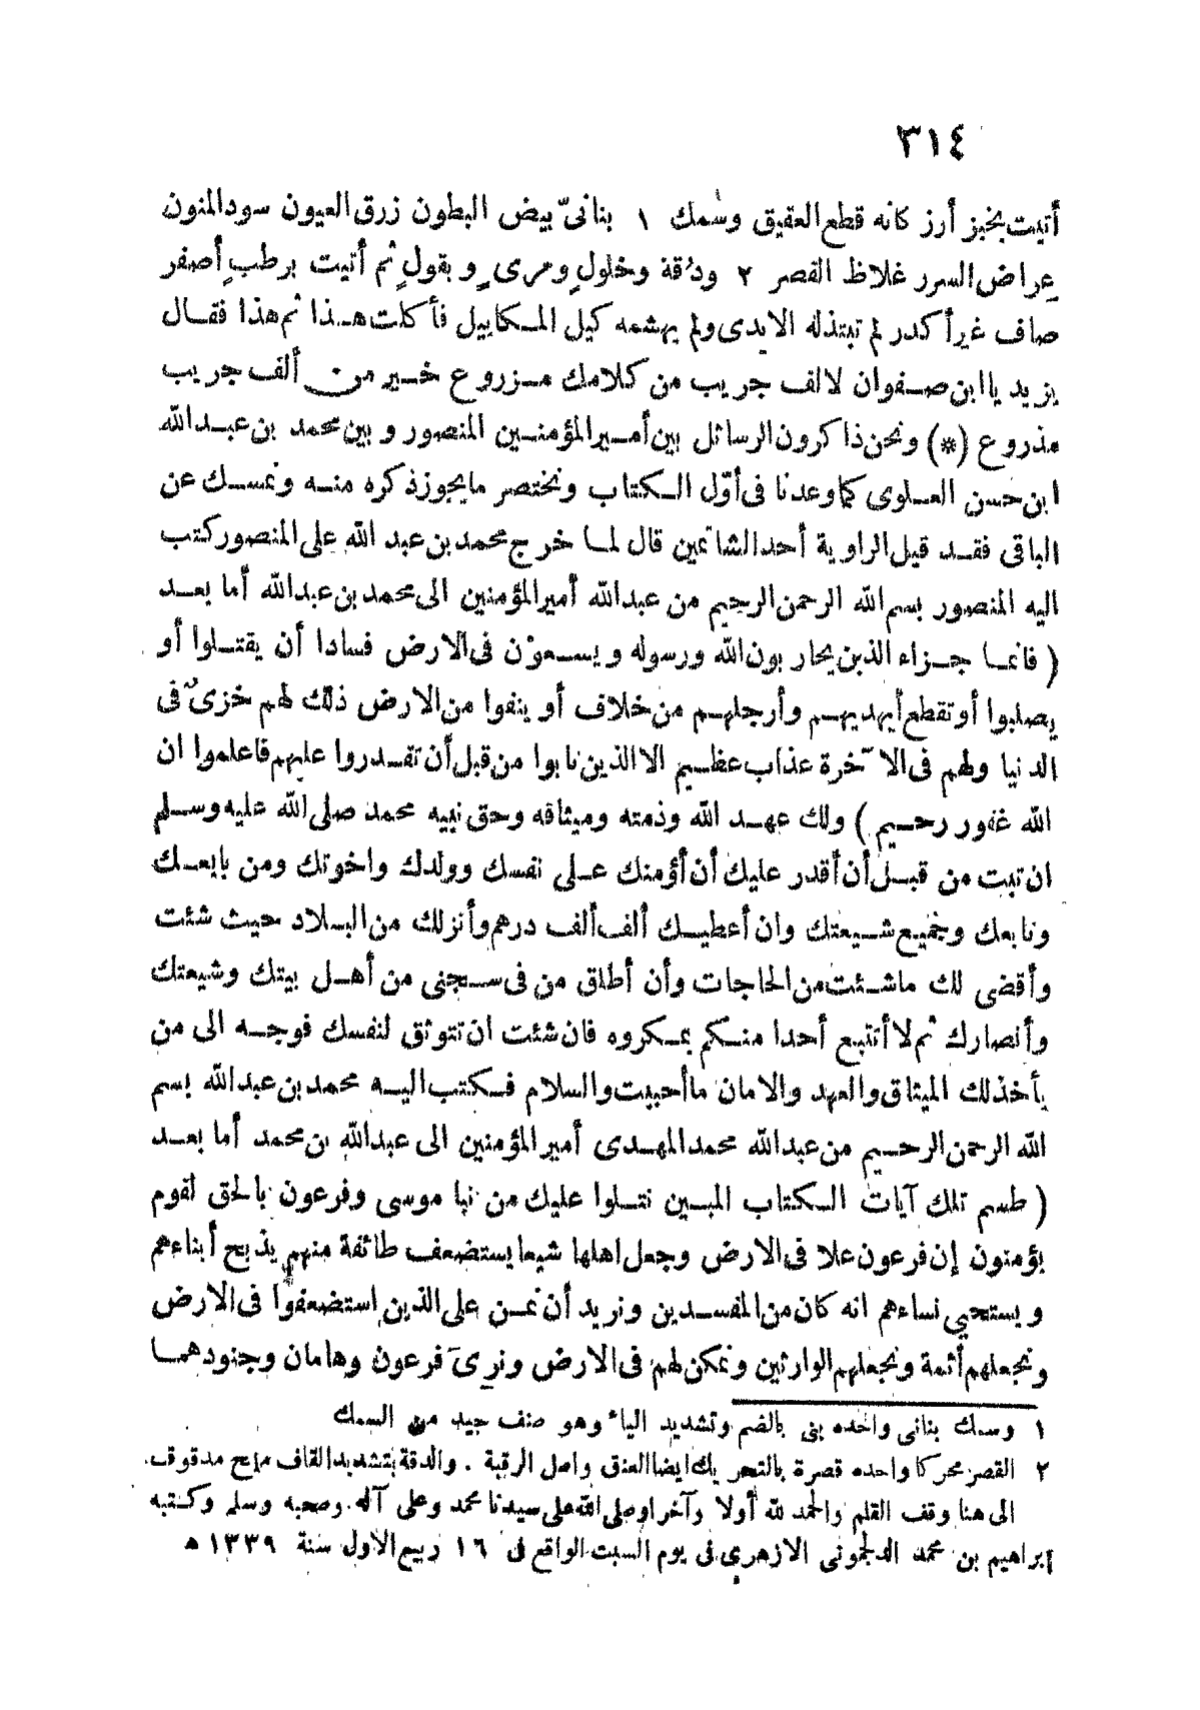 ٣١٤
أتيت بخبز أرز كانه قطع العقيق وسمك ١ بنانىّ بيض البطون زرق العيون سود المنون
عراض السرر غلاظ القصر ٢ ودُقة وخلولٍ ومرى وبقولٍ ثم أتيت برطبٍ أصفر
صاف غير أكدر لم تبتذله الايدى ولم يهشمه كيل المكاييل فأكلت هذا ثم هذا فقال
يزيد يا ابن صفوان لالف جريب من كلامك مزروع خير من ألف جريب
مذروع (*) ونحن ذا كرون الرسائل بين أمير المؤمنين المنصور وبين محمد بن عبد الله
ابن حسن العلوى كما وعدنا فى أوّل الكتاب ونختصر ما يجوز ذكره منه ونمسك عن
الباقى فقد قيل الراوية أحد الشاتمين قال لما خرج محمد بن عبد الله على المنصور كتب
اليه المنصور بسم الله الرحمن الرحيم من عبد الله أمير المؤمنين الى محمد بن عبد الله أما بعد
( فانما جزاء الذين يحاربون الله ورسوله ويسعوْن فى الارض فسادا أن يقتلوا أو
يصلبوا أو تقطع أيديهم وأرجلهم من خلاف أو ينفوا من الارض ذلك لهم خزىٌ فى
الدنيا ولهم فى الآخرة عذاب عظيم الا الذين تابوا من قبل أن تقدروا عليهم فاعلموا ان
الله غفور رحيم ) ولك عهد الله وذمته وميثاقه وحق نبيه محمد صلى الله عليه وسلم
ان تبت من قبل أن أقدر عليك أن أؤمنك على نفسك وولدك واخوتك ومن بايعك
وتابعك وجميع شيعتك وان أعطيك ألف ألف درهم وأنزلك من البلاد حيث شئت
وأقضى لك ما شئت من الحاجات وأن أطلق من فى سجنى من أهل بيتك وشيعتك
وأنصارك ثم لا أتتبع أحدا منكم بمكروه فان شئت ان تتوثق لنفسك فوجه الى من
يأخذ لك الميثاق والعهد والامان ما أحببت والسلام فكتب اليه محمد بن عبد الله بسم
الله الرحمن الرحيم من عبد الله محمد المهدى أمير المؤمنين الى عبد الله بن محمد أما بعد
( طسم تلك آيات الكتاب المبين نتلوا عليك من نبا موسى وفرعون بالحق لقوم
يؤمنون إن فرعون علا فى الارض وجعل اهلها شيعا يستضعف طائفة منهم يذبح أبناءهم
ويستحيي نساءهم انه كان من المفسدين ونريد أن نمن على الذين استضعفوا فى الارض
ونجعلهم أئمة ونجعلهم الوارثين ونمكن لهم فى الارض ونرىَ فرعون وهامان وجنودهما
١ وسمك بنانى واحده بنى بالضم وتشديد الياء وهو صنف جيد من السمك
٢ القصر محركا واحده قصرة بالتحريك ايضا العنق واصل الرقبة . والدقة بتشديد القاف ملح مدقوق.
الى هنا وقف القلم والحمد لله أولا وآخرا وصلى الله على سيدنا محمد وعلى آله وصحبه وسلم وكتبه
ابراهيم بن محمد الدلجمونى الازهرى فى يوم السبت الواقع فى ١٦ ربيع الاول سنة ١٣٣٩ ه